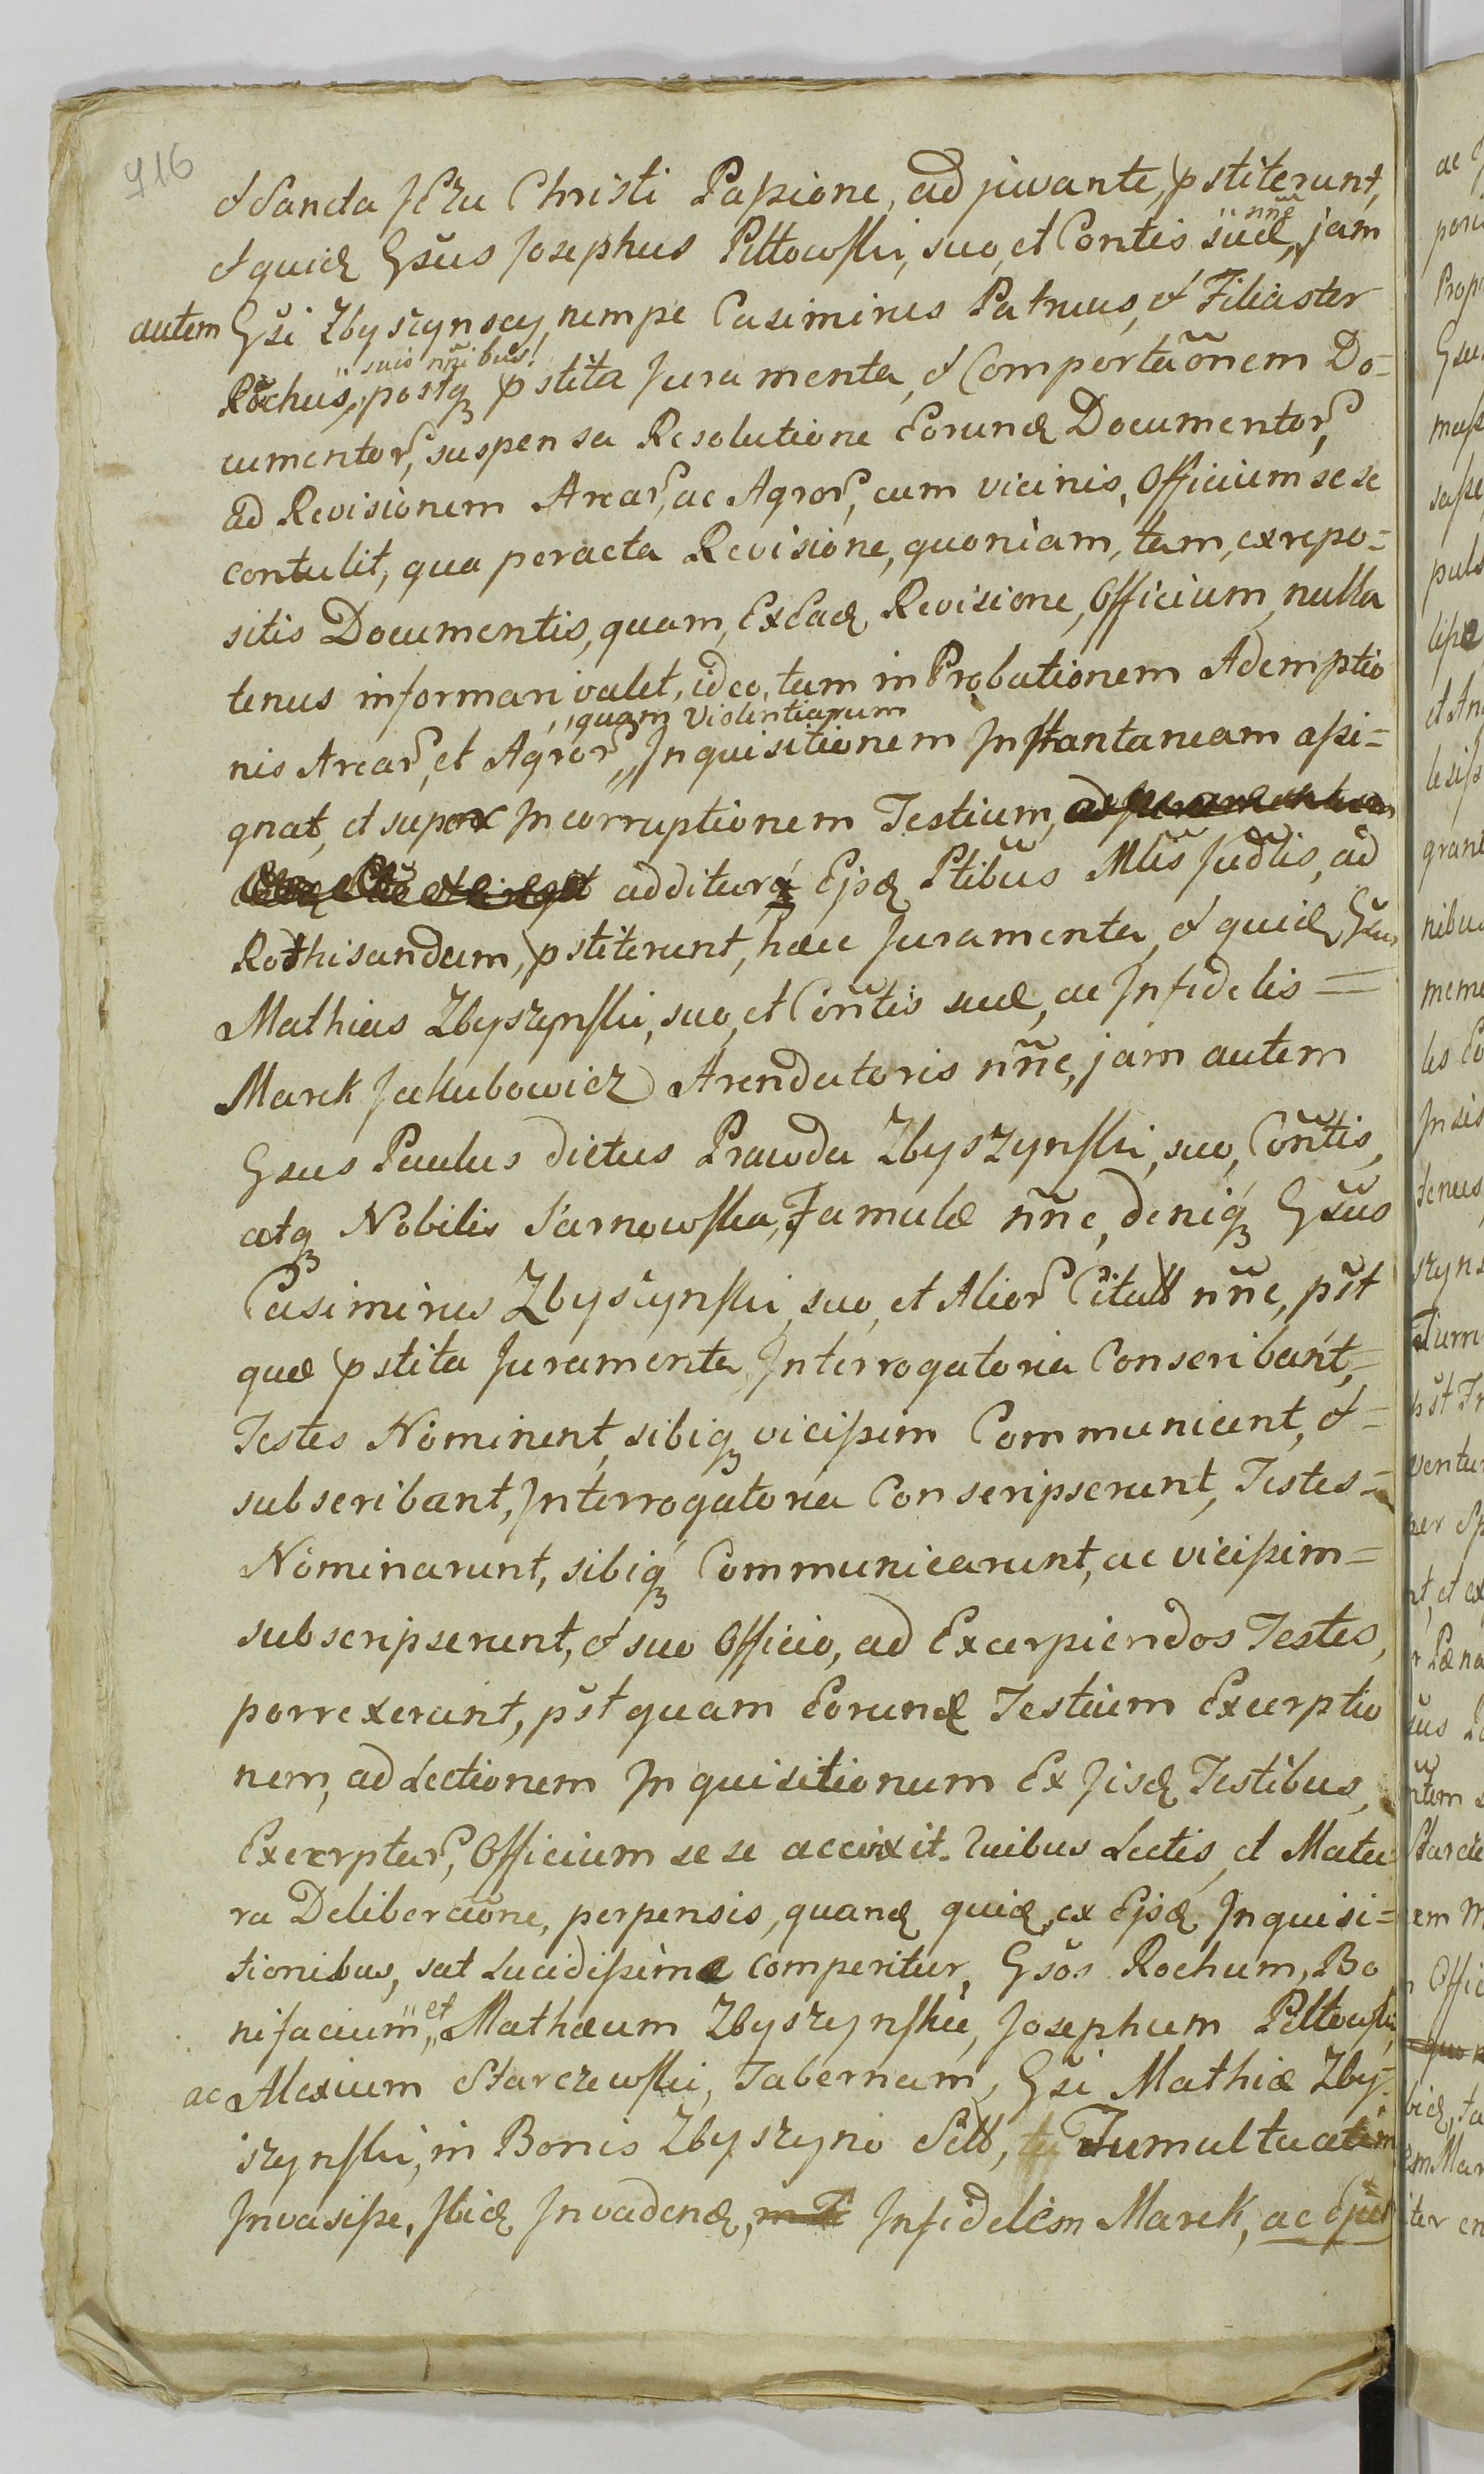 916
et Sancta Jezu Christi Passione, adjuvante, pstiterunt,
et quidꝫ Gsũs Josephus Pełtowski, suo, et Contis suæ, nñe jam
autem Gsi Zbyszynscy, nempe Casimirus Patruus, et Filiaster
Rochus, suis nñibus postqꝫ pstita Juramenta, et Comportaõnem Do-
cumentor, suspensa Resolutione Eorundꝫ Documentor,
ad Revisionem Arear, ac Agror, cum vicinis, Officium sese
contulit, qua peracta Revisione, quoniam, tam, ex repo=
sitis Documentis, quam, Ex Eadꝫ Revisione, Officium, nulla
tenus informari valet, ideo, tam in Probationem Ademptio
nis Arear, et Agror, quam Violentiarum Inquisitionem Instantaneam assi=
gnat, et super Incorruptionem Testium,
additur Ejsdꝫ Ptibus Mlis Judlis, ad
Rothisandum, pstiterunt, hæc Juramenta, et quidꝫ Gsus
Mathias Zbyszynski, suo, et Coñtis suæ, ac Infidelis =
Marek Jakubowicz Arendatoris nñe, jam autem
Gsus Paulus dictus Prawda Zbyszynski, suo, Coñtis,
atqꝫ Nobilis Sarnowska, Famulæ nñe, deniqꝫ Gsũs
Casimirus Zbyszynski, suo, et Alior Citall nñe, pst
quæ pstita Juramenta, Interrogatoria Conscribant,=
Testes Nominent, sibiqꝫ vicissim Communicent, et =
subscribant, Interrogatoria Conscripserunt, Testes =
Nominarunt, sibiqꝫ Communicarunt, ac vicissim =
subscripserunt, et suo Officio, ad Excerpiendos Testes,
porrexerunt, pst quam Eorundꝫ Testium Excerptio
nem, ad Lectionem Inquisitionum Ex Jisdꝫ Testibus,
Excerptar, Officium sese accinxit. Quibus Lectis, et Matu
ra Deliberaõne, perpensis, quandꝫ quidꝫ, ex Ejsdꝫ Inquisi=
tionibus, sat Lucidissime Comperitur, Gsos Rochum, Bo
nifacium, et Mathæum Zbyszynskie, Josephum Pełtowski,
ac Alexium Starczewski, Tabernam, Gsi Mathiæ Zby=
szynski, in Bonis Zbyszyno Sitt, Tumultuatim
Invasisse, Ibidꝫ Invadendꝫ, Infidelem Marek, ac Ejus